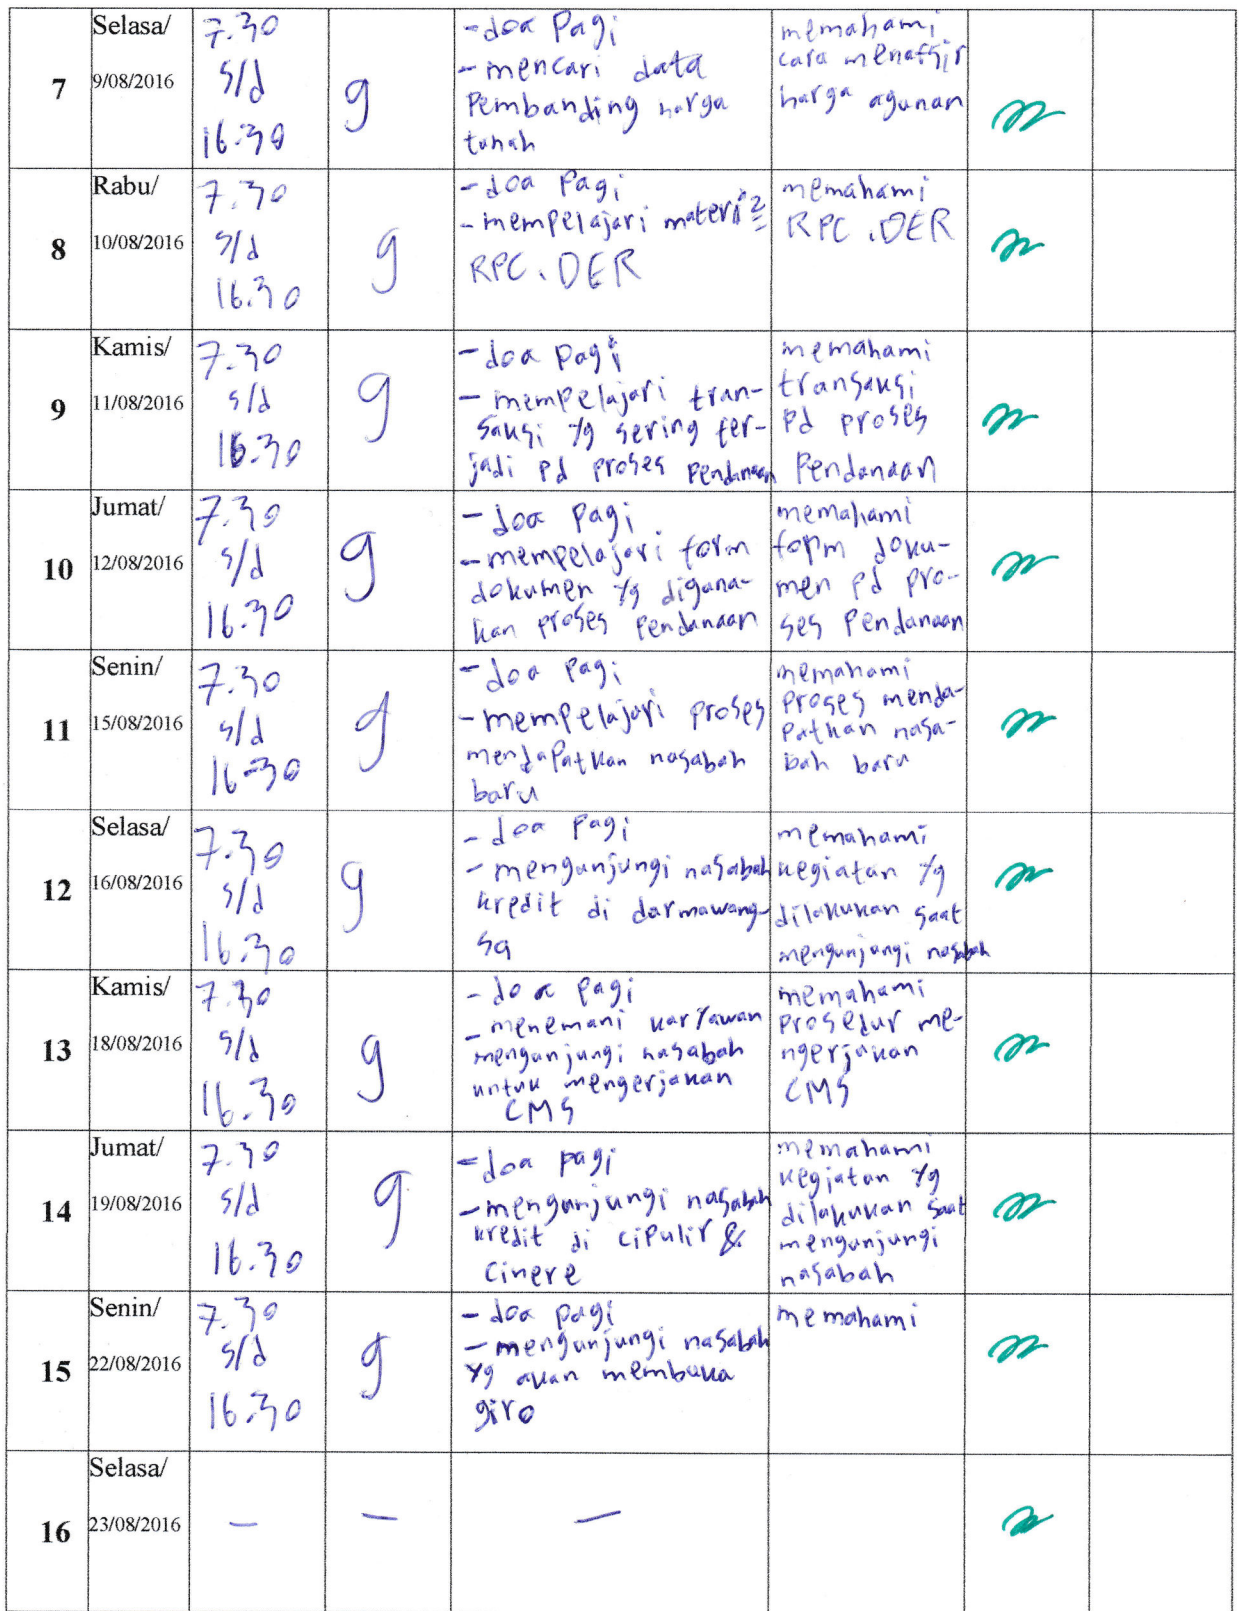 7
Selasa/
9/08/2016
7.30
s/d
16.30
9
- doa Pagi
- mencari data
Pembanding harga
tanah
memahami
cara menafsir
harga agunan
8
Rabu/
10/08/2016
7.30
s/d
16.30
9
- doa Pagi
- mempelajari materi2
RPC. DER
memahami
RPC. DER
9
Kamis/
11/08/2016
7.30
s/d
16.30
9
- doa Pagi
- mempelajari tran-
saksi yg sering ter-
jadi pd proses Pendanaan
memahami
transaksi
Pd proses
Pendanaan
10
Jumat/
12/08/2016
7.30
s/d
16.30
9
- doa Pagi
- mempelajari form
dokumen yg diguna-
kan proses Pendanaan
memahami
form doku-
men pd pro-
ses Pendanaan
11
Senin/
15/08/2016
7.30
s/d
16-30
9
- doa Pagi
- mempelajari proses
mendapatkan nasabah
baru
memahami
Proses menda-
Patkan nasa-
bah baru
12
Selasa/
16/08/2016
7.30
s/d
16.30
9
- doa Pagi
- mengunjungi nasabah
kredit di darmawang-
sa
memahami
kegiatan yg
dilakukan saat
mengunjungi nasabah
13
Kamis/
18/08/2016
7.30
s/d
16.30
9
- doa Pagi
- menemani karyawan
mengunjungi nasabah
untuk mengerjakan
CMS
memahami
Prosedur me-
ngerjakan
CMS
14
Jumat/
19/08/2016
7.30
s/d
16.30
9
- doa Pagi
- mengunjungi nasabah
kredit di ciPulir &
Cinere
memahami
kegiatan yg
dilakukan saat
mengunjungi
nasabah
15
Senin/
22/08/2016
7.30
s/d
16.30
9
- doa Pagi
- mengunjungi nasabah
yg akan membuka
giro
memahami
16
Selasa/
23/08/2016
-
-
-